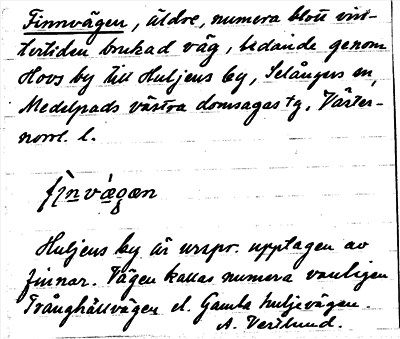 Finnvägen, äldre, numera blott vin-
tertiden brukad väg, ledande genom
Hovs by till Huljens by, Selångers sn,
Medelpads västra domsagas tg, Väster-
norrl. l.
fìnvä̀gæn
Huljens by är urspr. upptagen av
finnar. Vägen kallas numera vanligen
Trånghällvägen el. Gamla huljevägen.
A. Vestlund.